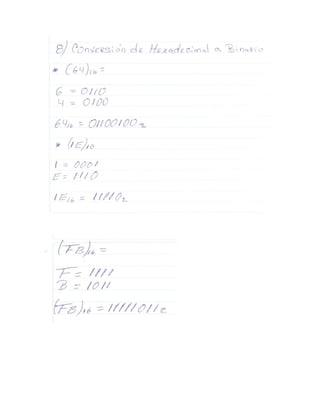 8) Conversión de Hexadecimal a Binario
* (64)₁₆ =
6 = 0110
4 = 0100
64₁₆ = 01100100₂
* (1E)₁₀
1 = 0001
E = 1110
1E₁₆ = 11110₂
(FB)₁₆ =
F = 1111
B = 1011
(FB)₁₆ = 11111011₂